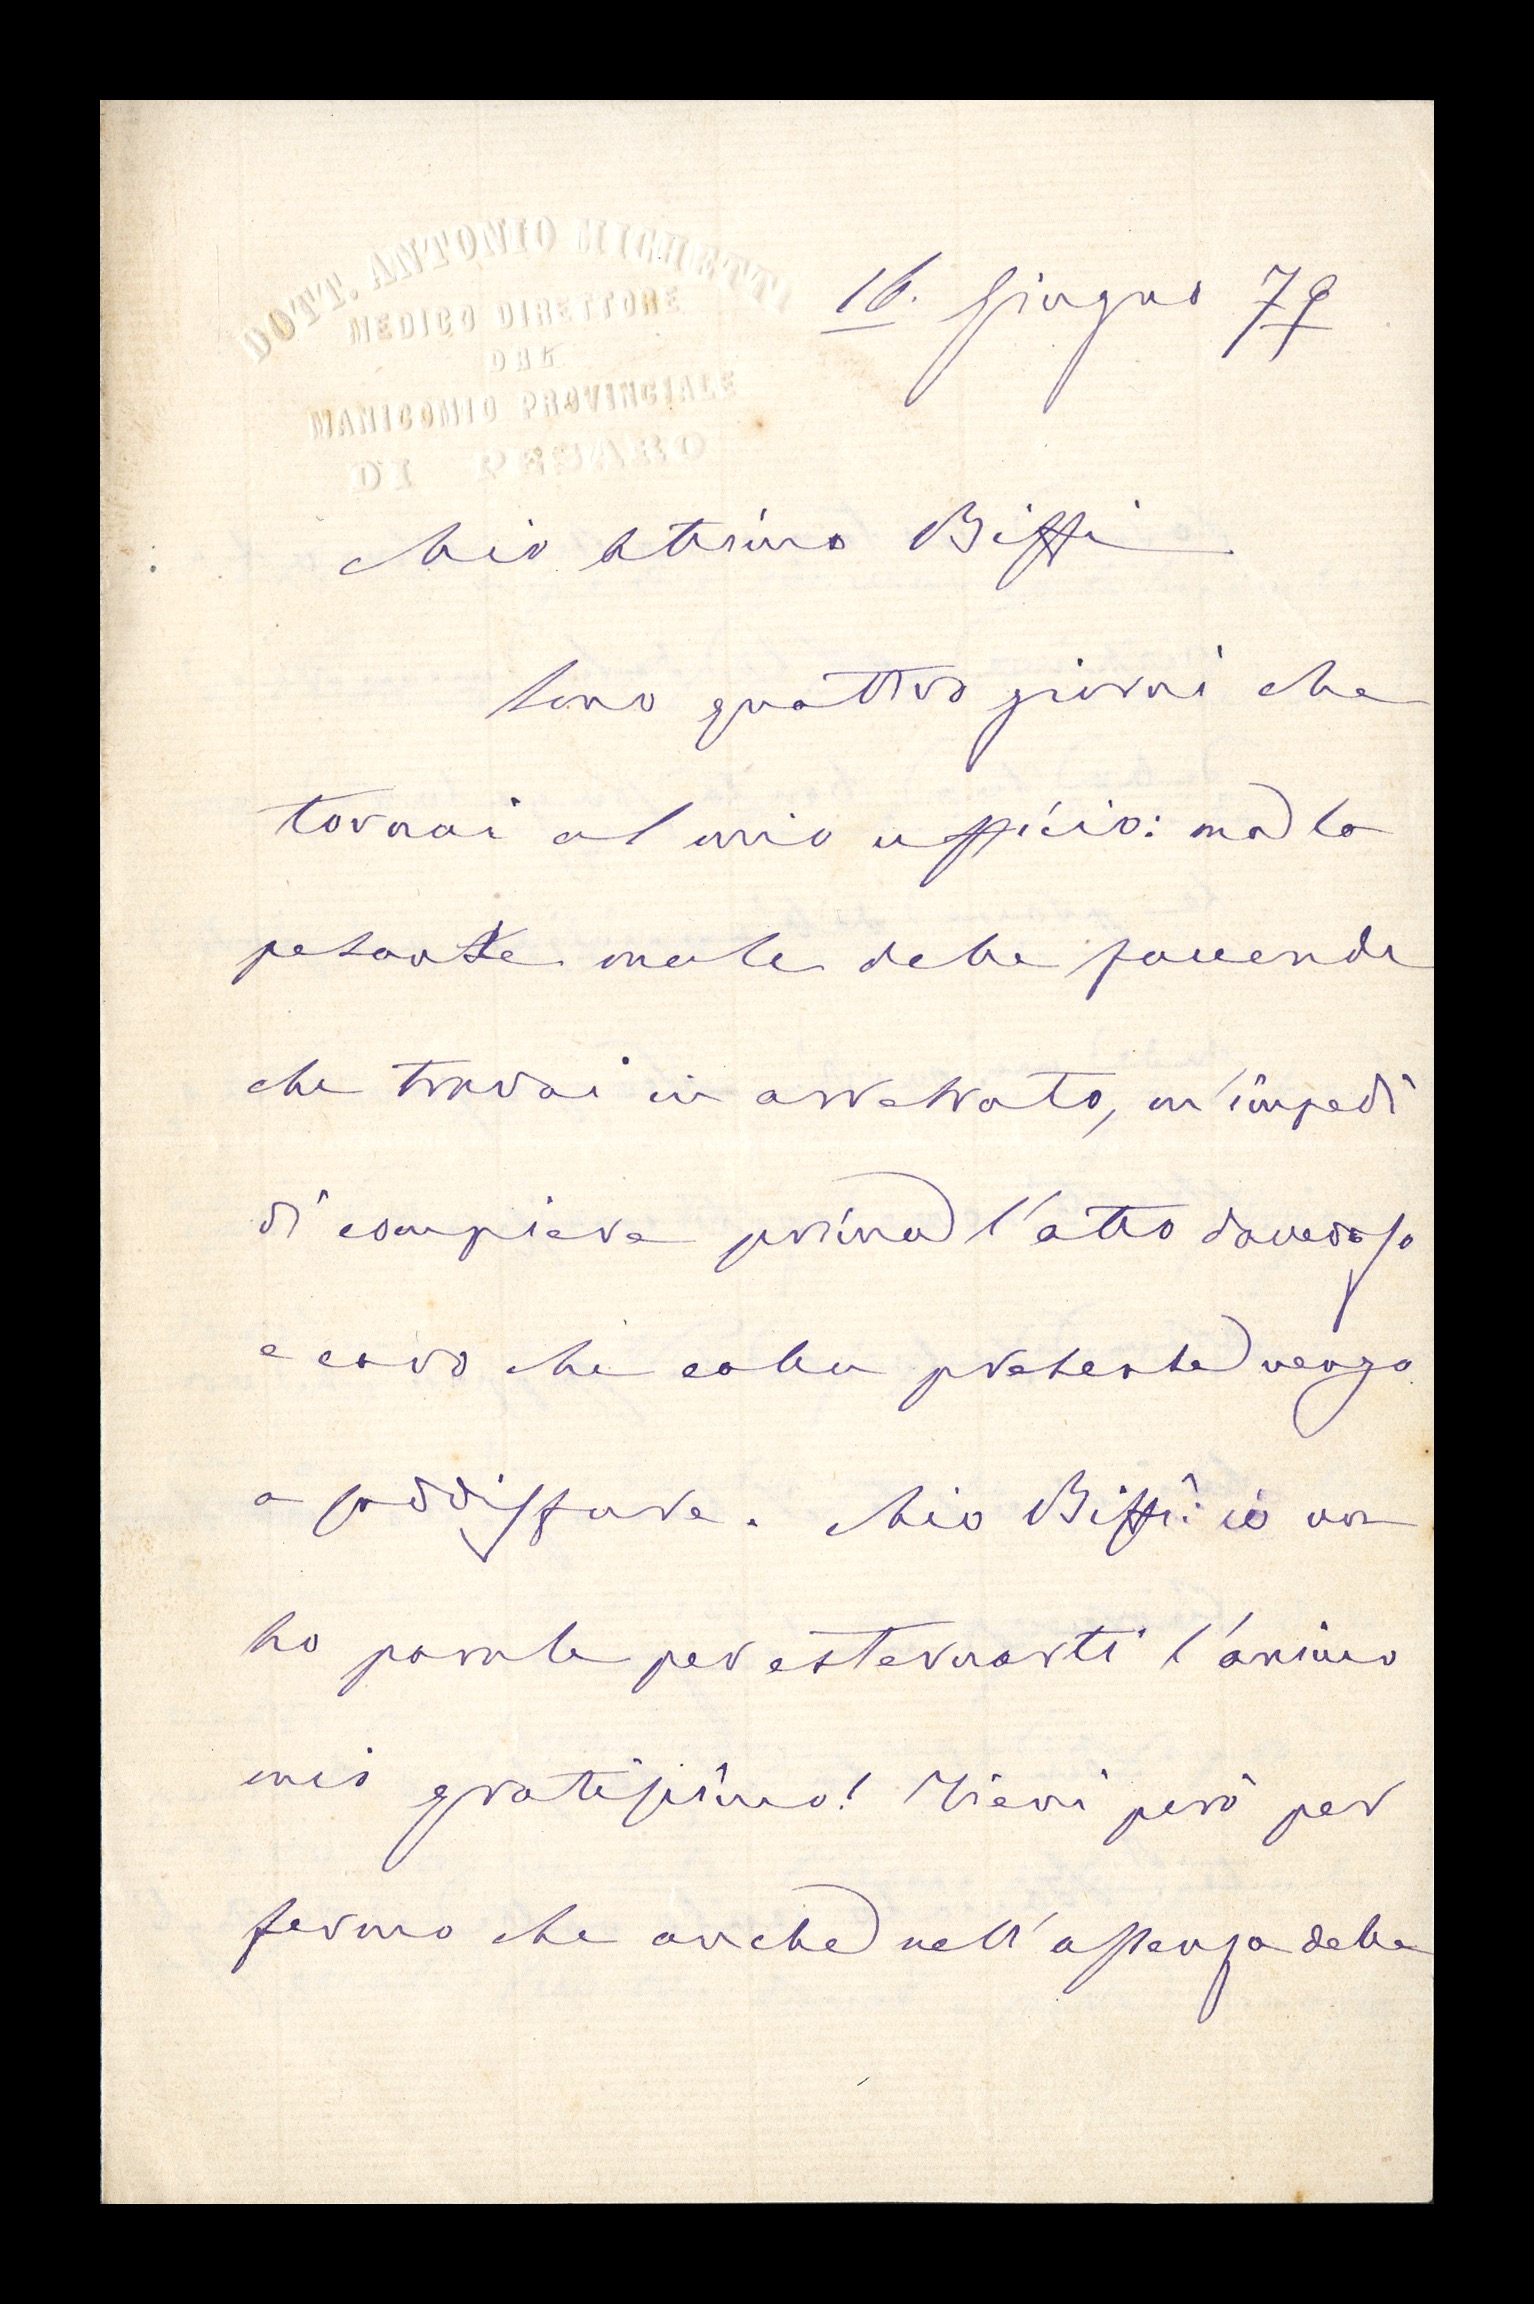 DOTT. ANTONIO MICHETTI
MEDICO DIRETTORE
DEL
MANICOMIO PROVINCIALE
DI PESARO
16. Giugno 79
Mio Stesimo Biffi
Sono quattro giorni che
tornai al mio ufficio: ma la
pesante mole delle faccende
che trovai in arretrato, m'impedì
di compiere prima l'atto doveroso
e caro che colla presente vengo
a soddisfare. Mio Biffi: io non
ho parole per esternarti l'animo
mio gratissimo! Tieni però per
fermo che anche nell'assenza delle